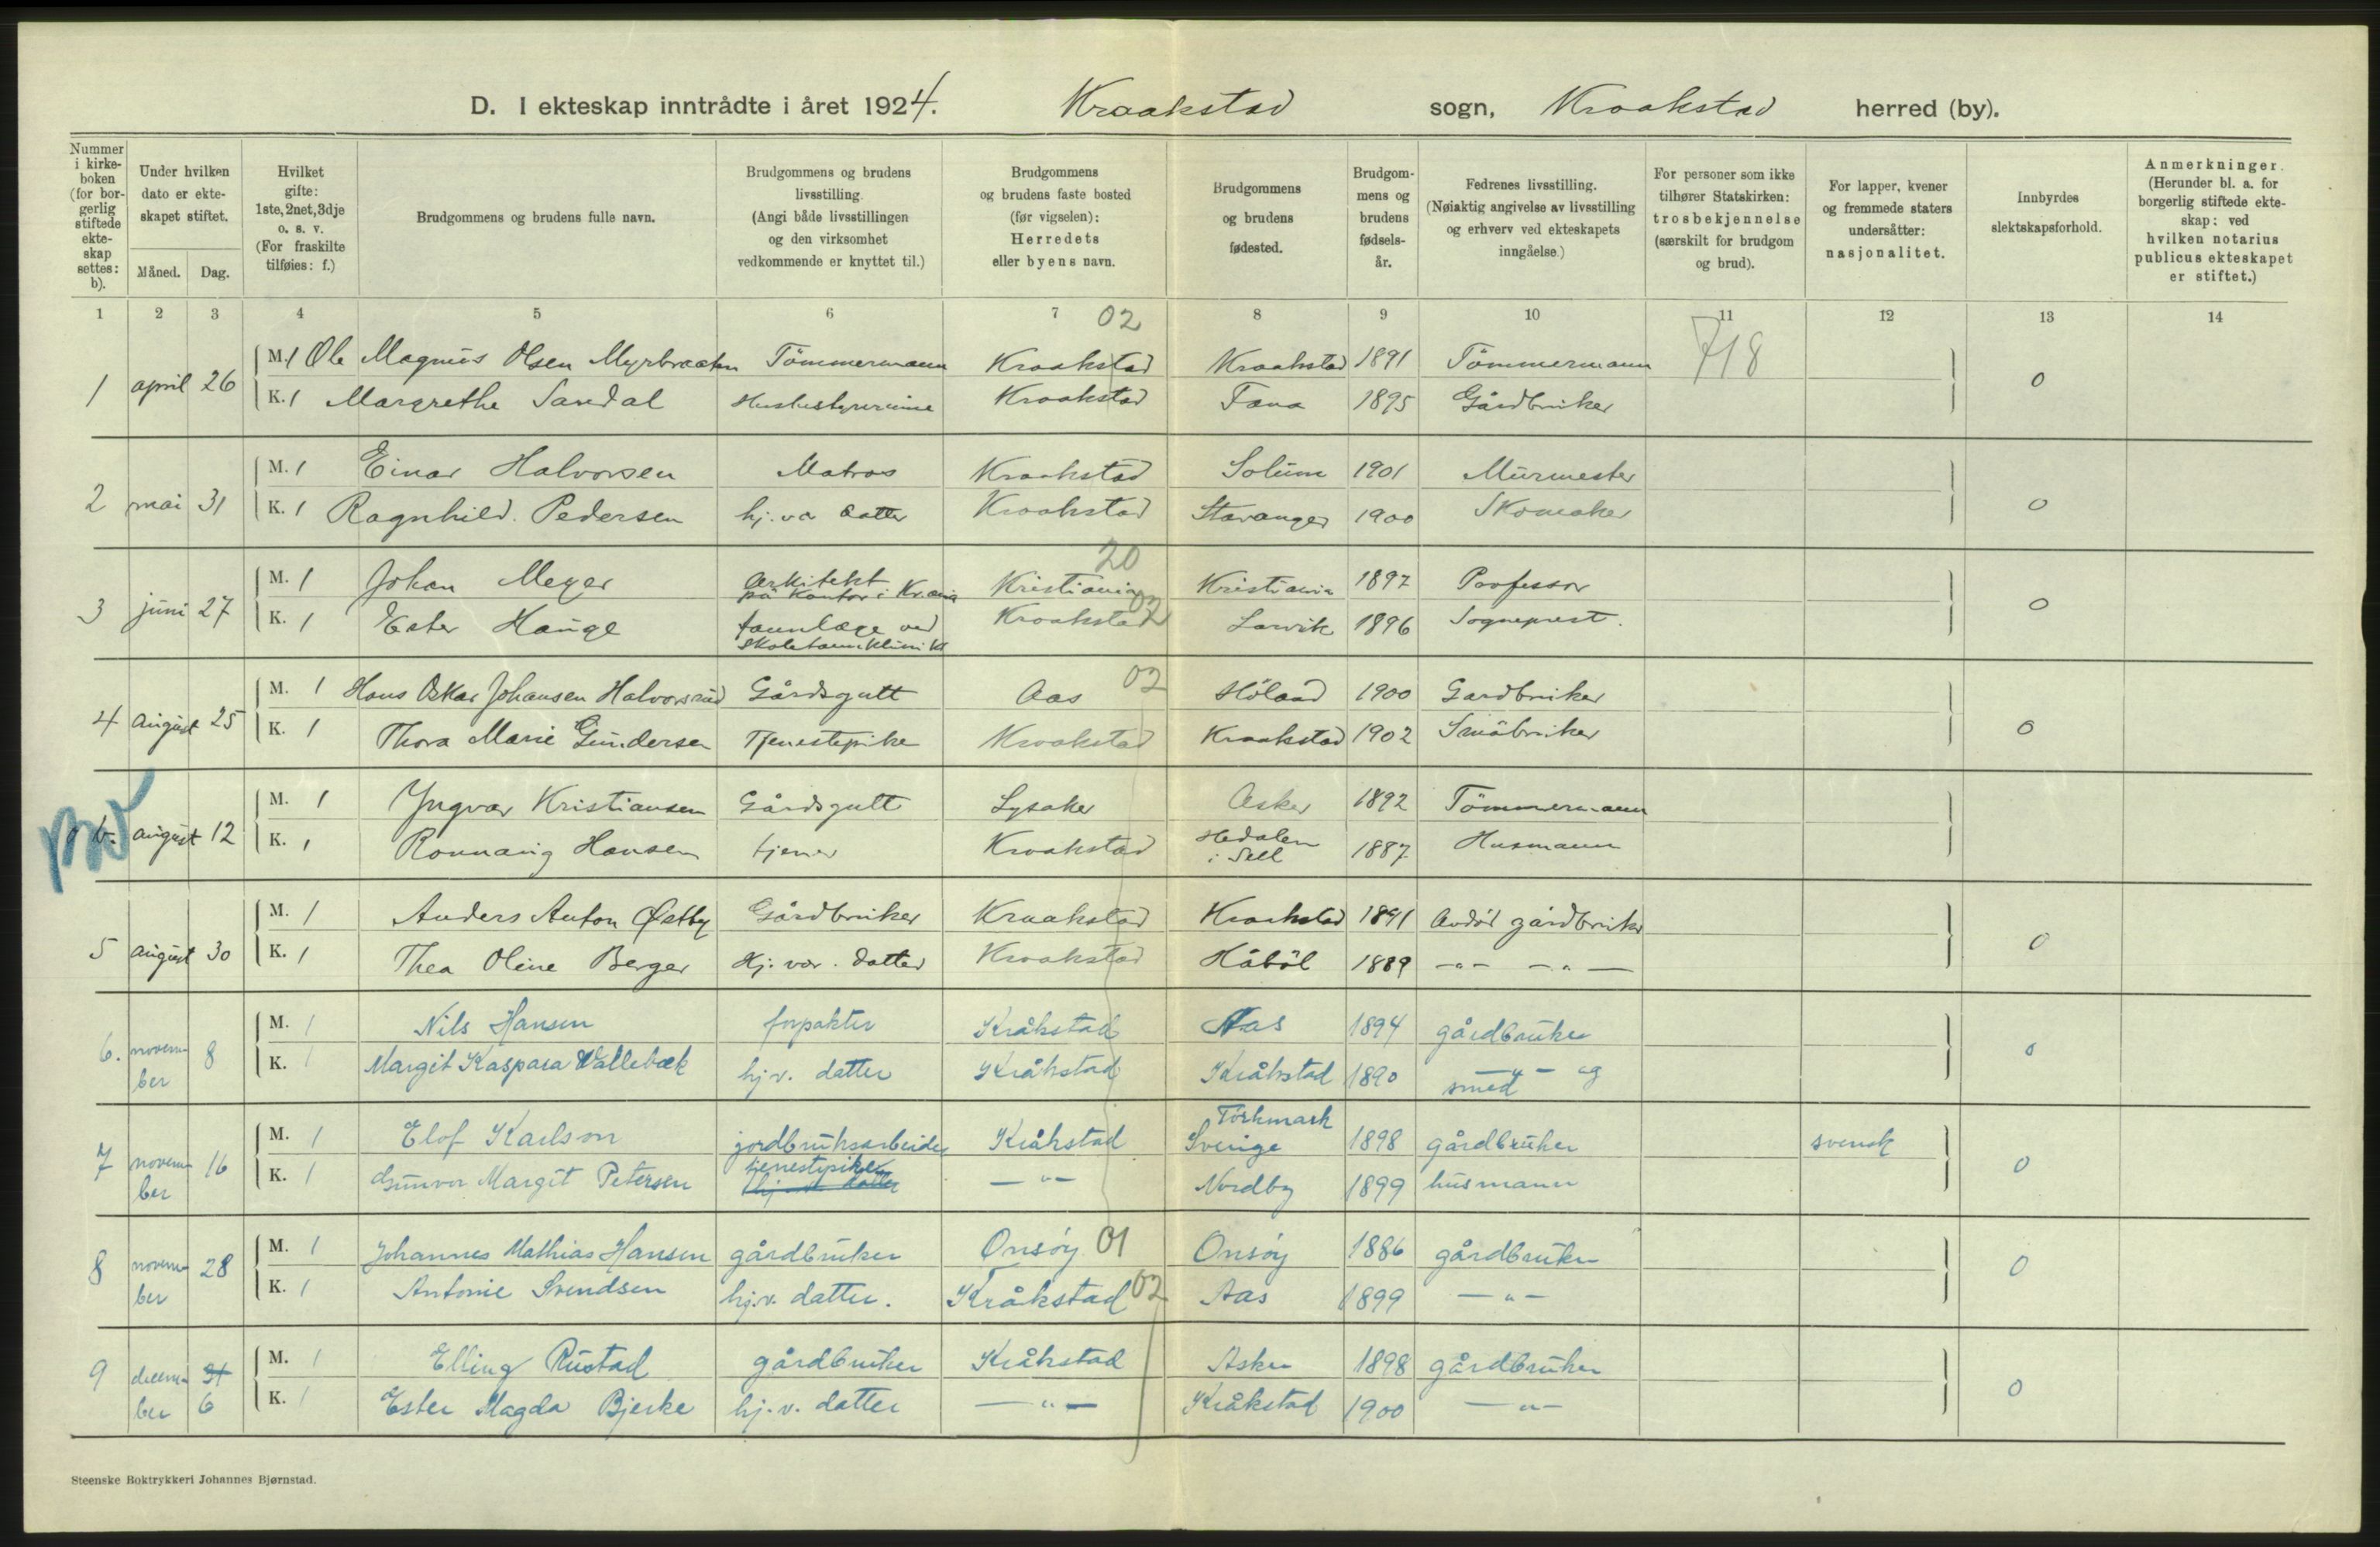 D. I ekteskap inntrådte i året 1924. Kraakstad sogn, Kraakstad herred (by).
Nummer i kirke-boken (for bor-gerlig stiftede ekte-skap settes: b).
Under hvilken dato er ekte-skapet stiftet.
Måned. Dag.
Hvilket gifte: 1ste, 2net, 3dje o. s. v. (For fraskilte tilføies: f.)
Brudgommens og brudens fulle navn.
Brudgommens og brudens livsstilling. (Angi både livsstillingen og den virksomhet vedkommende er knyttet til.)
Brudgommens og brudens faste bosted (før vigselen): Herredets eller byens navn.
Brudgommens og brudens fødested.
Brudgom-mens og brudens fødsels-år.
Fedrenes livsstilling. (Nøiaktig angivelse av livsstilling og erhverv ved ekteskapets inngåelse.)
For personer som ikke tilhører Statskirken: trosbekjennelse (særskilt for brudgom og brud).
For lapper, kvener og fremmede staters undersåtter: nasjonalitet.
Innbyrdes slektskapsforhold.
Anmerkninger. (Herunder bl. a. for borgerlig stiftede ekte-skap: ved hvilken notarius publicus ekteskapet er stiftet.)
1 2 3 4 5 6 7 02 8 9 10 11 12 13 14
1 april 26 M. 1 Ole Magnus Olsen Myrbraaten Tömmermann Kraakstad Kraakstad 1891 Tömmermann 718 0
K. 1 Margrethe Sandal Husbestyrerinne Kraakstad Fana 1895 Gårdbruker
2 mai 31 M. 1 Einar Halvorsen Matros Kraakstad Solum 1901 Murmester 0
K. 1 Ragnhild Pedersen hj. vr datter Kraakstad Stavanger 1900 Skomaker
3 juni 27 M. 1 Johan Meyer Arkitekt på kontor i Kr.ania Kristiania 20 Kristiania 1897 Professor 0
K. 1 Ester Hauge tannlæge ved skoletannklinikk Kraakstad 02 Larvik 1896 Sogneprest.
4 august 25 M. 1 Hans Oskar Johansen Halvorsrud Gårdsgutt Aas 02 Höland 1900 Gardbruker 0
K. 1 Thora Marie Gundersen Tjenestepike Kraakstad Kraakstad 1902 Småbruker
b. august 12 M. 1 Yngvar Kristiansen Gårdsgutt Lysaker Asker 1892 Tömmermann
K. 1 Ronnaug Hansen tjener Kraakstad Hedalen i Sell 1887 Husmann
5 august 30 M. 1 Anders Anton Østby Gårdbruker Kraakstad Kraakstad 1891 Avdöd gårdbruker 0
K. 1 Thea Oline Berger Hj. vær. datter Kraakstad Håböl 1889 — " — — " —
6. novem-ber 8 M. 1 Nils Hansen forpakter Kråkstad Aas 1894 gårdbruker 0
K. 1 Margit Kaspara Vallebæk hj. v. datter Kråkstad Kråkstad 1890 — " — og smed
7 novem-ber 16 M. 1 Elof Karlson jordbruksarbeider Kråkstad Sverige 1898 gårdbruker svensk 0
K. 1 Gunvor Margit Petersen tjenestepike hj. v. datter — " — Nordby 1899 husmann
8 novem-ber 28 M. 1 Johannes Mathias Hansen gårdbruker Onsöy 01 Onsöy 1886 gårdbruker 0
K. 1 Antonie Svendsen hj. v. datter. Kråkstad 02 Aas 1899 — " —
9 decem-ber 31 6 M. 1 Elling Rustad gårdbruker Kråkstad Asker 1898 gårdbruker 0
K. 1 Ester Magda Bjerke hj. v. datter — " — Kråkstad 1900 — " —
Steenske Boktrykkeri Johannes Bjørnstad.